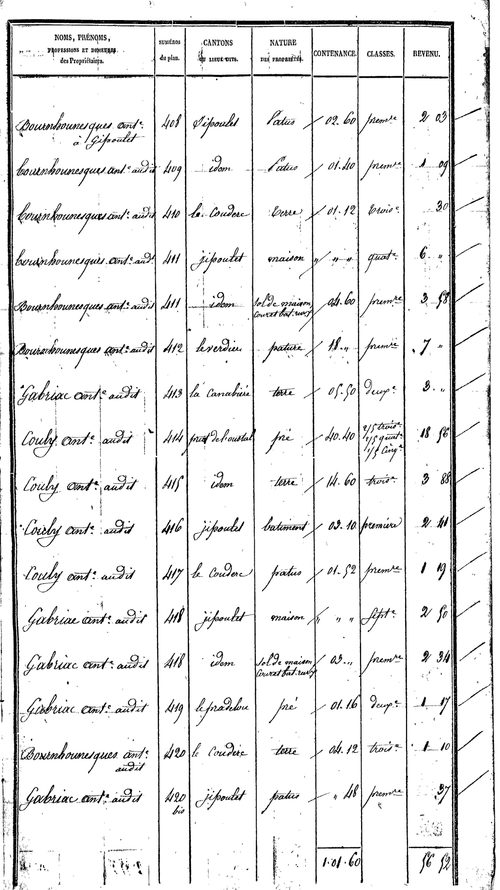 NOMS, PRÉNOMS, PROFESSIONS ET DEMEURES des Propriétaires. NUMÉROS du plan. CANTONS OU LIEUX-DITS. NATURE DES PROPRIÉTÉS. CONTENANCE. CLASSES. REVENU.
Bournhounesques ant.e à Gipoulet 408 Jipoulet Patus 02.60 prem.re 2 03
Bournhounesques ant.e audit 409 idem Patus 01.40 prem.re 1 09
Bournhounesques ant.e audit 410 le Couderc terre 01.12 trois.e 30
Bournhounesques ant.e aud.t 411 jipoulet maison " " " quat.e 6 "
Bournhounesques ant.e audit 411 idem sol de maison, 04.60 prem.re 3 58
Bournhounesques ant.e audit 412 le verdier pature 18 " prem.re 7 "
Gabriac ant.e audit 413 la Canabiére terre 05.50 deux.e 3 "
Couly ant.e audit 414 prat de l'oustal pré 40.40 2/5 trois.e 2/5 quat.e 1/5 cinq.e 18 56
Couly ant.e audit 415 idem terre 14.60 trois.e 3 88
Couly ant.e audit 416 jipoulet batiment 03.10 premiere 2 41
Couly ant.e audit 417 le Couderc patus 01.52 prem.re 1 19
Gabriac ant.e audit 418 jipoulet maison " " " sept.e 2 50
Gabriac ant.e audit 418 idem sol de maison 03 " prem.re 2 34
Gabriac ant.e audit 419 le pradelou pré 01.16 deux.e 1 17
Bournhounesques ant.e audit 420 le Couderc terre 04.12 trois.e 1 10
Gabriac ant.e audit 420 bis jipoulet patus " 48 prem.re 37
1.01.60 56 52